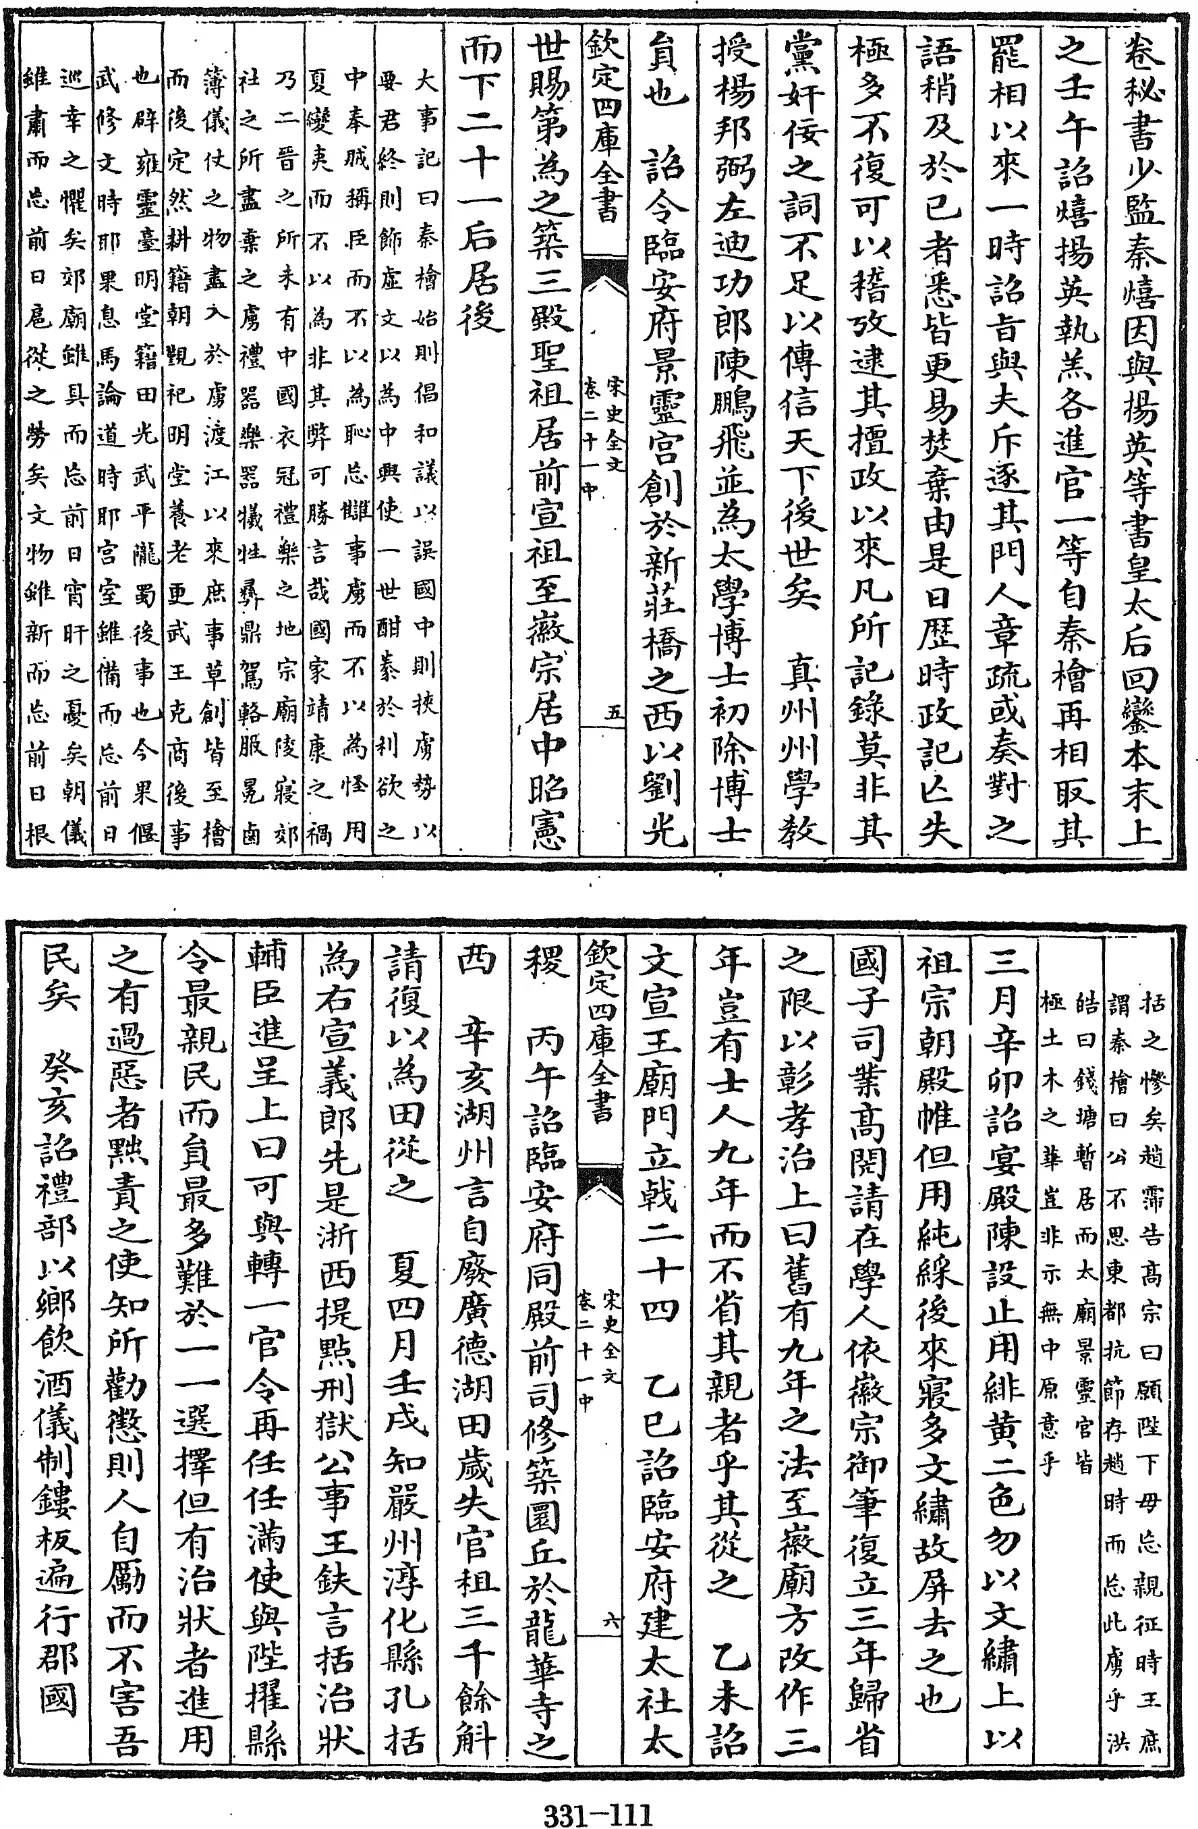 卷秘書少監秦熺因與揚英等書皇太后回鑾本末上
之壬午詔熺揚英執羔各進官一等自秦檜再相取其
罷相以來一時詔旨與夫斥逐其門人章疏或奏對之
語稍及於已者悉皆更易焚棄由是日歴時政記亡失
極多不復可以稽攷逮其擅政以來凡所記錄莫非其
黨奸佞之詞不足以傳信天下後世矣　真州州學敎
授楊邦弼左迪功郎陳鵬飛並為太學博士初除博士
員也　詔令臨安府景靈宫創於新莊橋之西以劉光
欽定四庫全書
宋史全文
卷二十一中
五
世賜第為之築三殿聖祖居前宣祖至徽宗居中昭憲
而下二十一后居後
大事記曰秦檜始則倡和議以誤國中則挾虜勢以
要君終則飾虛文以為中興使一世酣豢於利欲之
中奉賊稱臣而不以為恥忘讎事虜而不以為怪用
夏變夷而不以為非其弊可勝言哉國家靖康之禍
乃二晉之所未有中國衣冠禮樂之地宗廟陵寢郊
社之所盡棄之虜禮器樂器犧牲彝鼎駕輅服冕鹵
簿儀仗之物盡入於虜渡江以來庶事草創皆至檜
而後定然耕籍朝覲祀明堂養老更武王克商後事
也辟雍靈臺明堂籍田光武平隴蜀後事也今果偃
武修文時耶果息馬論道時耶宫室雖備而忘前日
巡幸之懼矣郊廟雖具而忘前日宵旰之憂矣朝儀
雖肅而忘前日扈從之勞矣文物雖新而忘前日根
括之慘矣趙霈告高宗曰願陛下毋忘親征時王庶
謂秦檜曰公不思東都抗節存趙時而忘此虜乎洪
皓曰錢塘暫居而太廟景靈宫皆
極土木之華豈非示無中原意乎
三月辛卯詔宴殿陳設止用緋黄二色勿以文繡上以
祖宗朝殿帷但用純綵後來寢多文繡故屏去之也
國子司業高閌請在學人依徽宗御筆復立三年歸省
之限以彰孝治上曰舊有九年之法至徽廟方改作三
年豈有士人九年而不省其親者乎其從之　乙未詔
文宣王廟門立戟二十四　乙巳詔臨安府建太社太
欽定四庫全書
宋史全文
卷二十一中
六
稷　丙午詔臨安府同殿前司修築圜丘於龍華寺之
西　辛亥湖州言自廢廣德湖田歲失官租三千餘斛
請復以為田從之　夏四月壬戌知嚴州淳化縣孔括
為右宣義郎先是浙西提點刑獄公事王鈇言括治狀
輔臣進呈上曰可與轉一官令再任任滿使與陛擢縣
令最親民而員最多難於一一選擇但有治狀者進用
之有過惡者黜責之使知所勸懲則人自勵而不害吾
民矣　癸亥詔禮部以鄉飲酒儀制鏤板遍行郡國
331-111